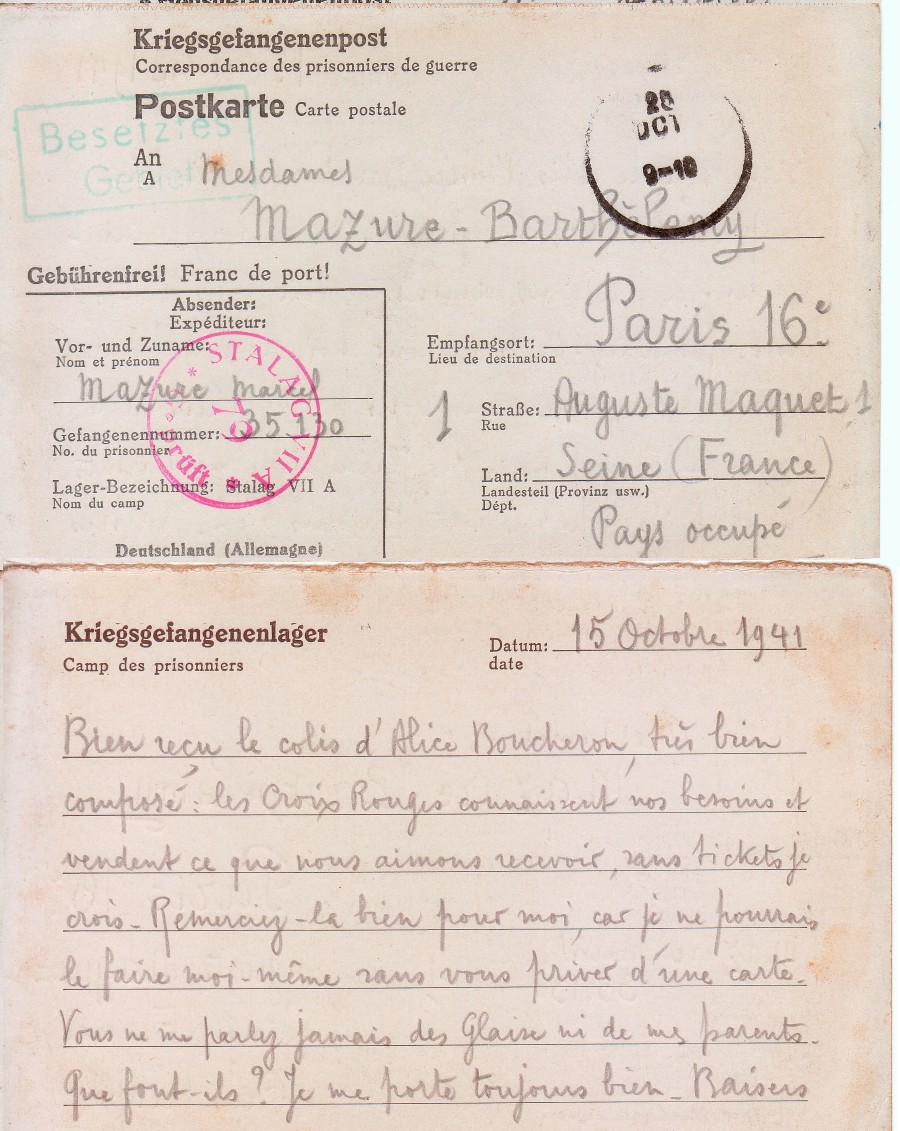 Kriegsgefangenenpost
Correspondance des prisonniers de guerre
Postkarte Carte postale
Besetztes
Gebiet
28
OCT
9-10
An
A
Mesdames
Mazure - Barthèlemy
Gebührenfrei! Franc de port!
Absender:
Expéditeur:
Vor- und Zuname:
Nom et prénom
Mazure Marcel
Gefangenennummer: 35130
No. du prisonnier
Lager-Bezeichnung: Stalag VII A
Nom du camp
Deutschland (Allemagne)
STALAG VII A
geprüft
Empfangsort: Paris 16e
Lieu de destination
1
Straße: Auguste Maquet 1
Rue
Land: Seine (France)
Landesteil (Provinz usw.)
Dépt.
Pays occupé
Kriegsgefangenenlager
Camp des prisonniers
Datum: 15 Octobre 1941
date
Bien reçu le colis d'Alice Boucheron, très bien
composé : les Croix Rouges connaissent nos besoins et
vendent ce que nous aimons recevoir, sans tickets je
crois - Remerciez-la bien pour moi, car je ne pourrais
le faire moi-même sans vous priver d'une carte.
Vous ne me parlez jamais des Glaise ni de mes parents.
Que font-ils ? Je me porte toujours bien - Baisers